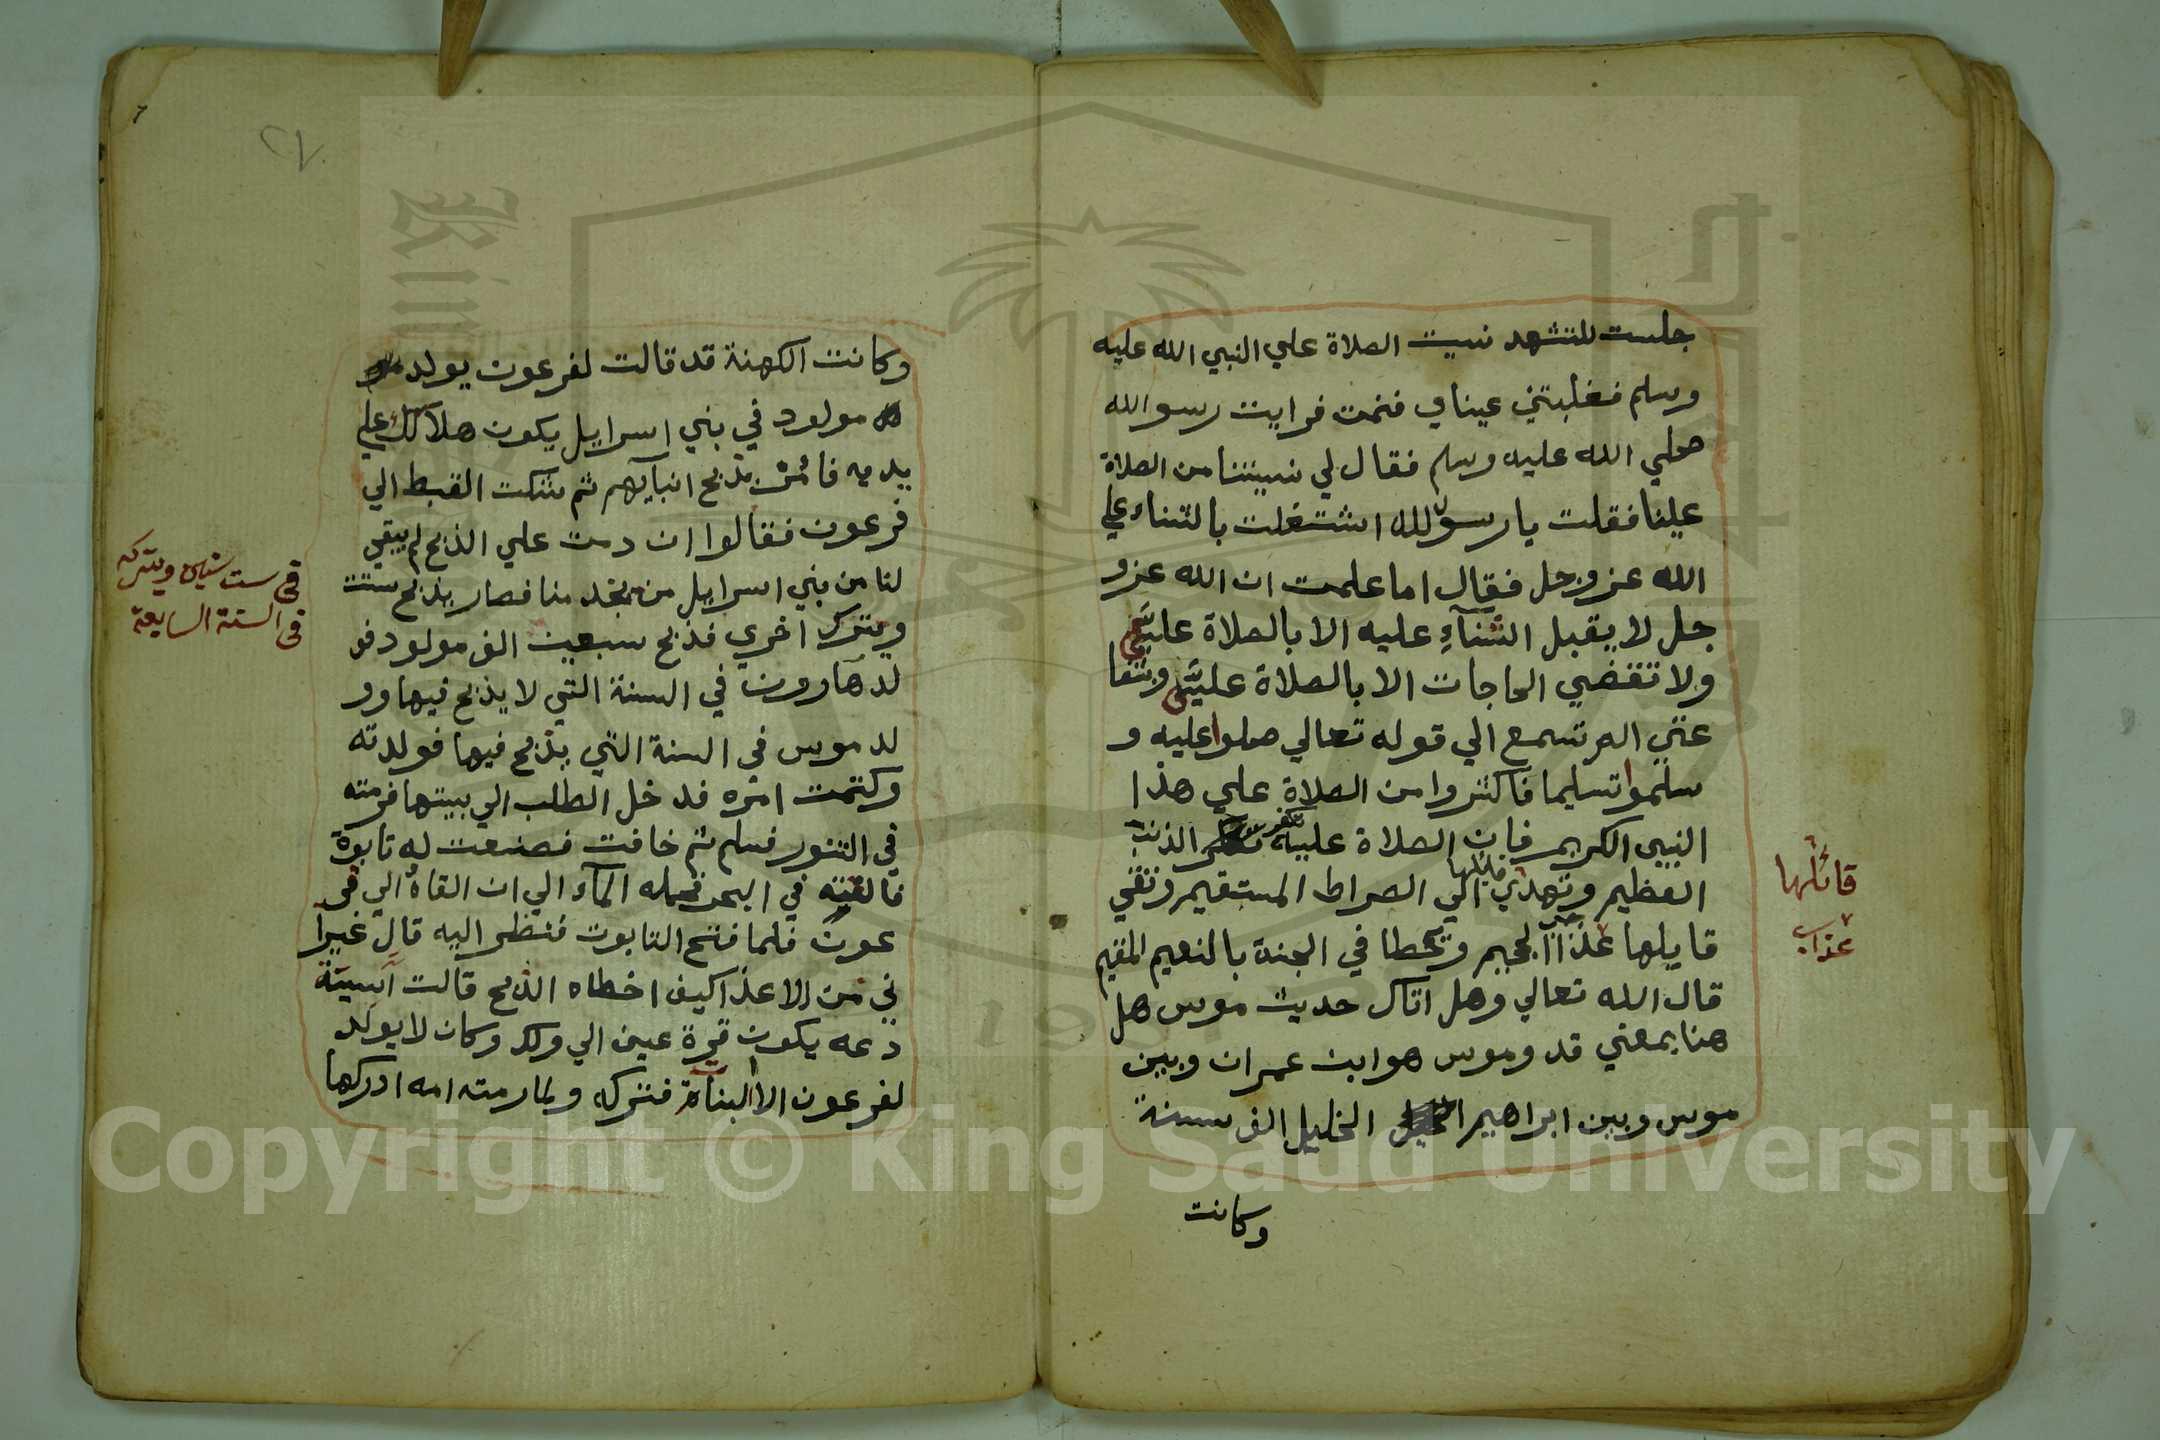 جلست للتشهد نسيت الصلاة علي النبي الله عليه
وسلم فغلبتني عيناي فنمت فرايت رسو الله
صلي الله عليه وسلم فقال لي نسيتنا من الصلاة
علينا فقلت يا رسول لله اشتغلت بالثناء علي
الله عز وجل فقال اما علمت ان الله عز و
جل لا يقبل الثنآء عليه الا بالصلاة علي
ولا تقضي الحاجات الا بالصلاة علي
عني الم تسمع الي قوله تعالي صلوا عليه و
سلموا تسليما فاكثروا من الصلاة علي هذا
النبي الكريم فان الصلاة عليه تكفر الذنب
العظيم وتهدي قايلها الي الصراط المستقيم وتقي
قايلها عذاب الجحيم وتحطا في الجنة بالنعيم المقيم
قال الله تعالي وهل اتاك حديث موسي هل
هنا بمعني قد وموسي هو ابن عمران وبين
موسي وبين ابراهيم الخليل الف سنة
وكانت
قائلها
عذاب
٢٧
وكانت الكهنة قد قالت لفرعون يولد
مولود في بني اسرايل يكون هلاكك علي
يديه فامر بذبح ابنآيهم ثم شكت القبط الي
فرعون فقالوا ان دمت علي الذبح لم يبقي
لنا من بني اسرايل من يخد منا فصار يذبح ستت
ويترك اخري فذبح سبعين الف مولود فو
لد هارون في السنة التي لا يذبح فيها وو
لد موسي في السنة التي يذبح فيها فولدته
وكتمت امره فدخل الطلب الي بيتها فرمته
في التنور فسلم ثم خافت فصنعت له تابوة
فالقته في البحر فحمله المآء الي ان القاه الي فر
عون فلما فتح التابوت فنظر اليه قال عبرا
ني من الاعدا كيف اخطاه الذبح قالت آسية
دعه يكون قرة عين لي ولك وكان لا يولد
لفرعون الا البنات فتركه ولما رمته امه ادركها
في ست سنين ويتركه
في السنة السابعة
Copyright © King Saud University